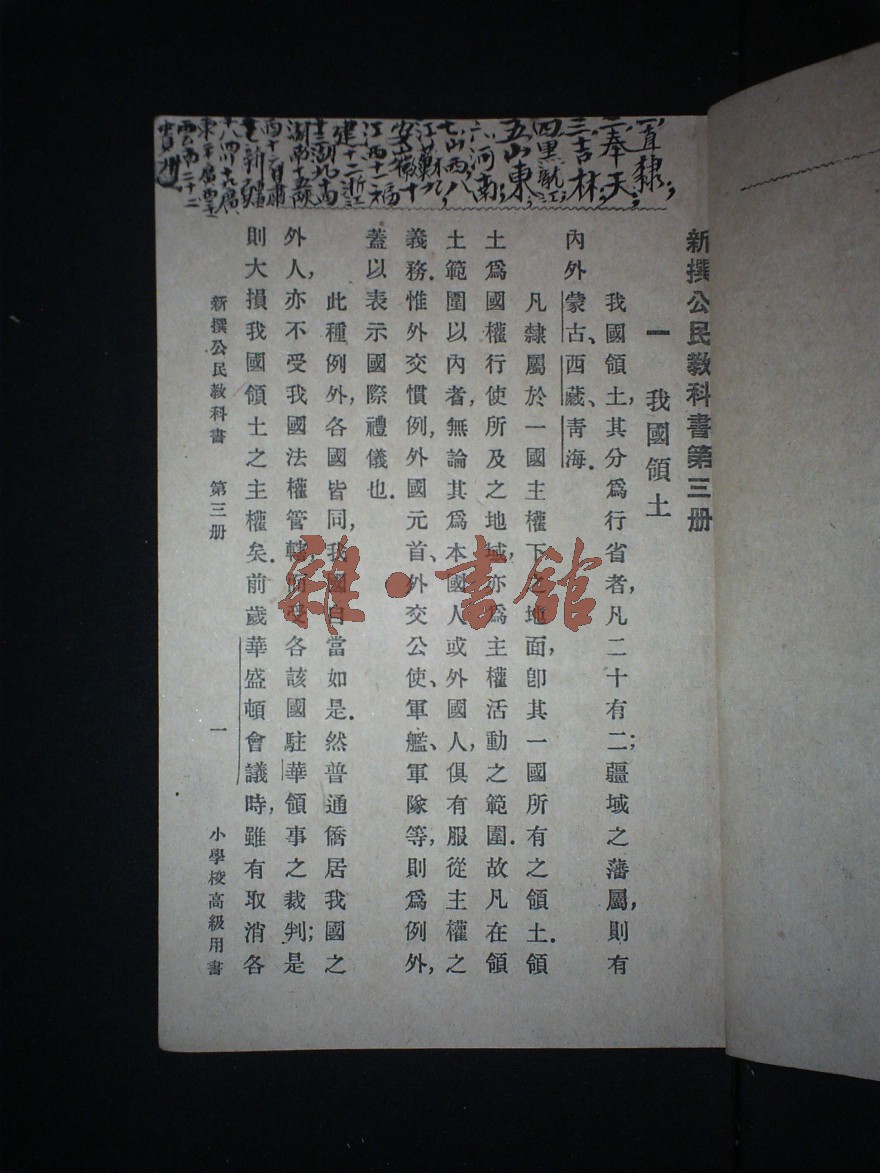 一直隸，
二奉天，
三吉林，
四黑龍江，
五山東，
六河南，
七山西，八
江蘇九
安徽十
江西十一福
建十二浙江
十三湖北十四
湖南十五陝
西十六甘肅
十七新疆
十八四川十九廣
東二十廣西二十一
雲南二十二
貴州
新撰公民教科書第三册
一　我國領土
我國領土，其分爲行省者，凡二十有二；疆域之藩屬，則有
內外蒙古、西藏、靑海．
凡隸屬於一國主權下之地面，卽其一國所有之領土．領
土爲國權行使所及之地域，亦爲主權活動之範圍．故凡在領
土範圍以內者，無論其爲本國人或外國人，俱有服從主權之
義務．惟外交慣例，外國元首、外交公使、軍艦、軍隊等，則爲例外，
蓋以表示國際禮儀也．
此種例外，各國皆同，我國自當如是．然普通僑居我國之
外人，亦不受我國法權管轄，而受各該國駐華領事之裁判；是
則大損我國領土之主權矣．前歲華盛頓會議時，雖有取消各
新撰公民教科書　第三册　一　小學校高級用書
雜·書館